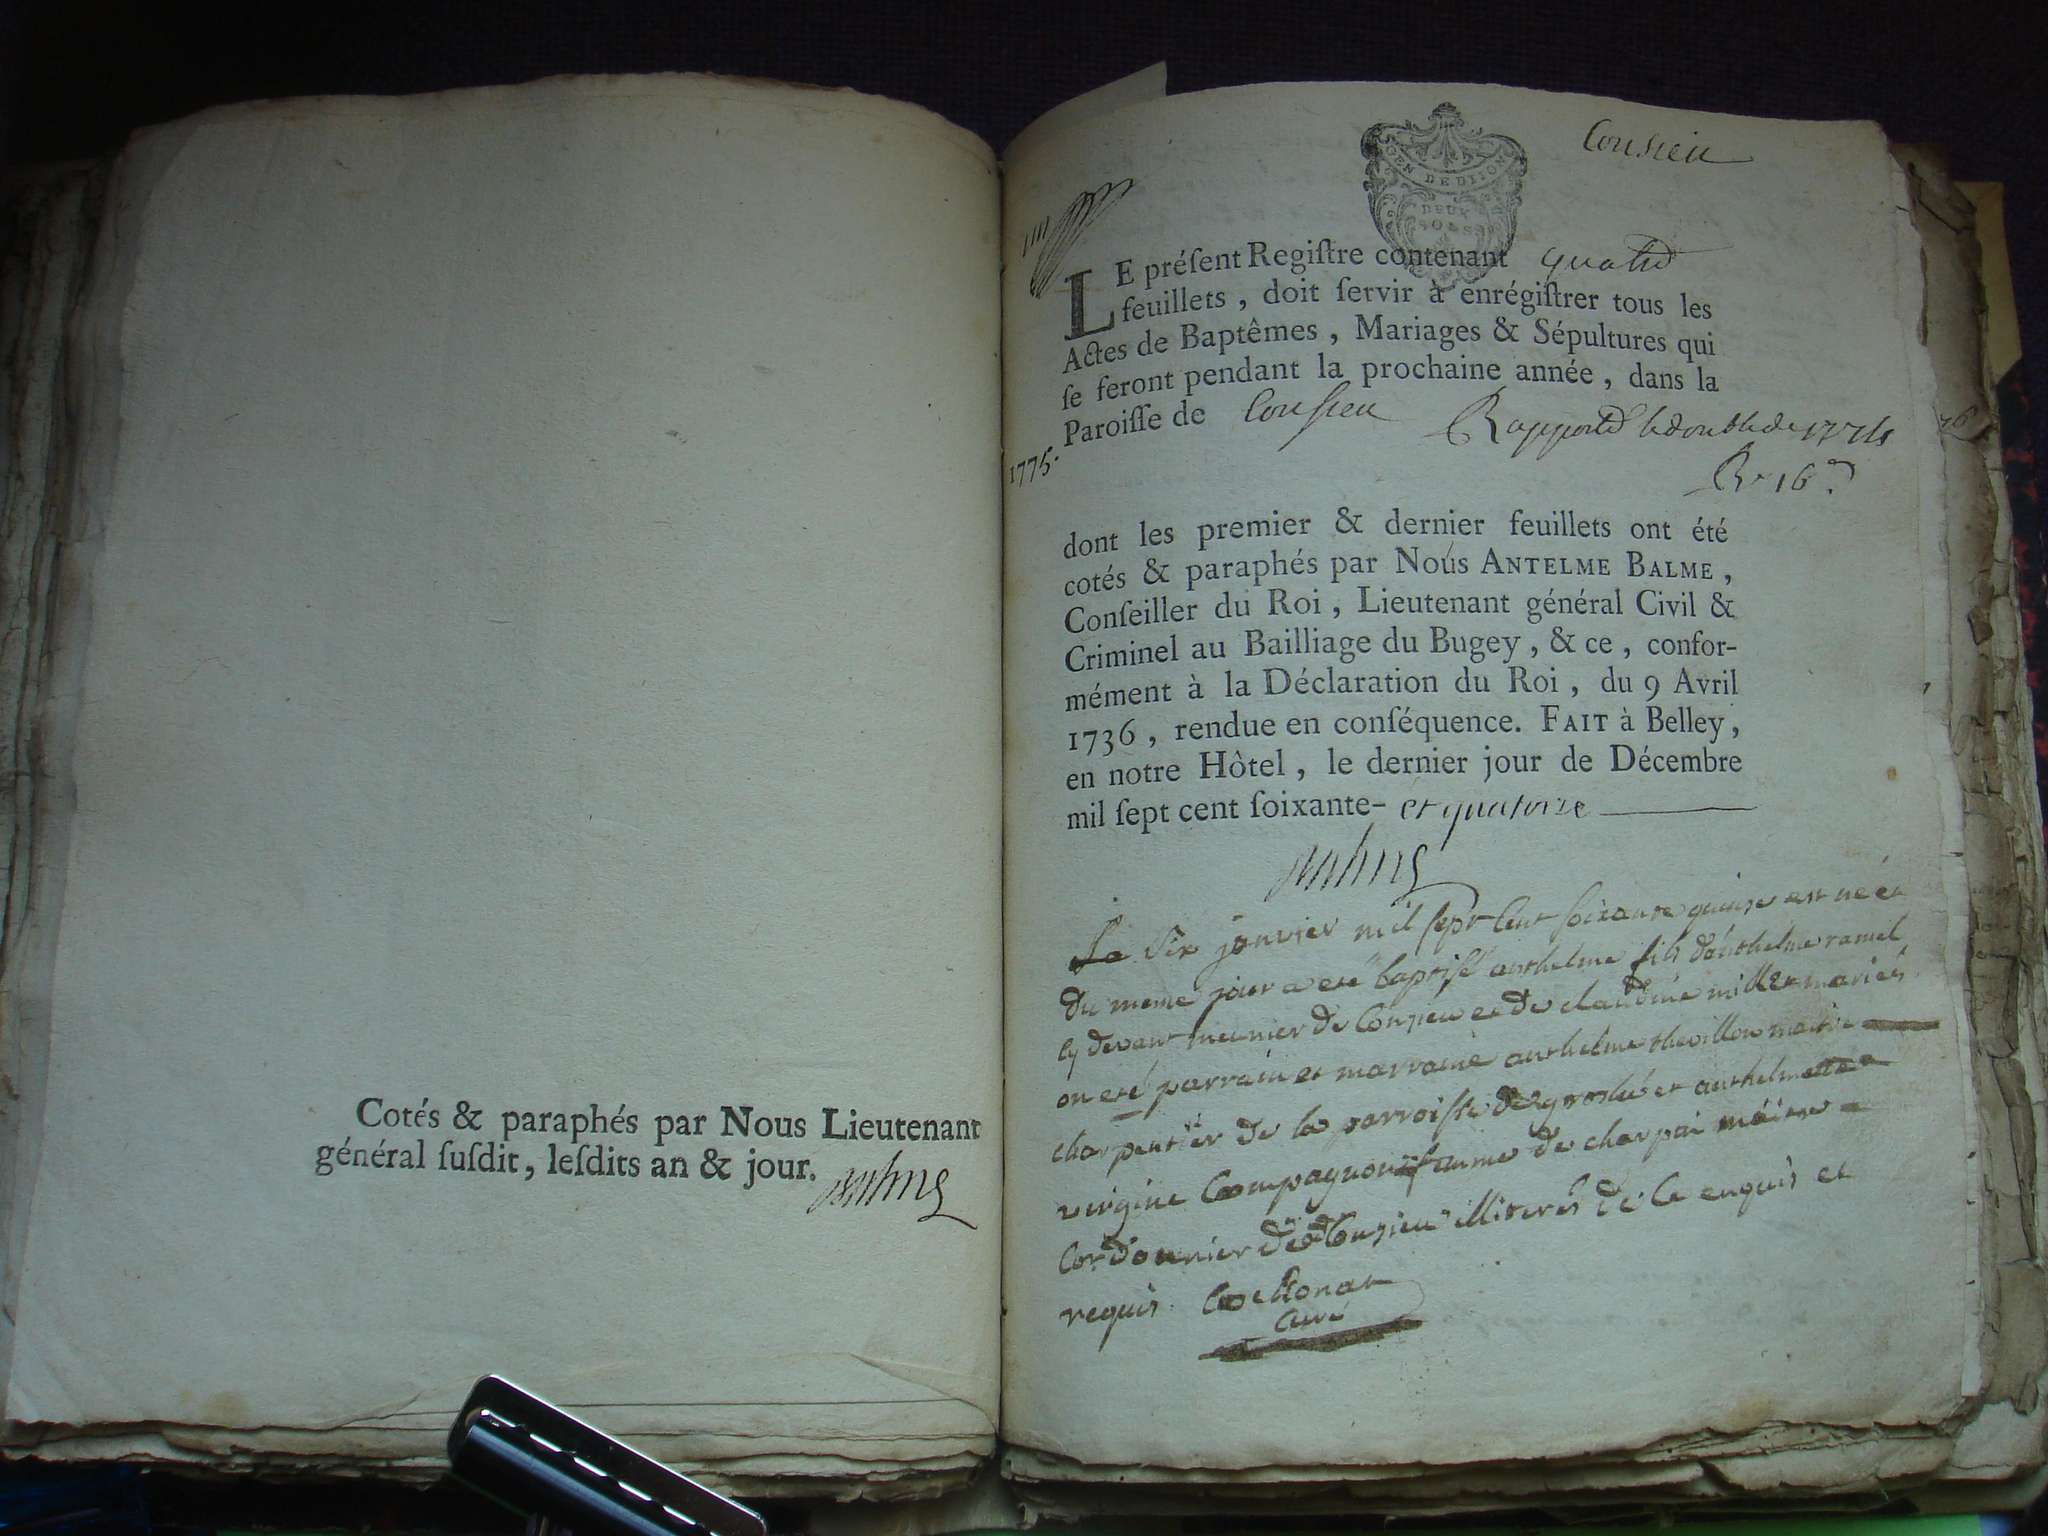 Cotés & paraphés par Nous Lieutenant
général ſuſdit, leſdits an & jour.
Consieu
GEN DE DIJON
DEUX
SOLS
LE préſent Regiſtre contenant quatre
feuillets, doit ſervir à enrégiſtrer tous les
Actes de Baptêmes, Mariages & Sépultures qui
ſe feront pendant la prochaine année, dans la
Paroiſſe de Conſieu Rapporté le double de 1774
1775.
dont les premier & dernier feuillets ont été
cotés & paraphés par Nous ANTELME BALME,
Conſeiller du Roi, Lieutenant général Civil &
Criminel au Bailliage du Bugey, & ce, confor-
mément à la Déclaration du Roi, du 9 Avril
1736, rendue en conſéquence. FAIT à Belley,
en notre Hôtel, le dernier jour de Décembre
mil ſept cent ſoixante- et quatorze
Le six janvier mil sept cent soixante quinze est né et
du meme jour a eté baptisé anthelme fils d'anthelme ramel
cy devant meunier de Conzieu et de claudine millet mariés
on eté parrain et marraine anthelme thevillon maitre
charpentier de la parroisse de groslé et anthelmette
virgine Compagnon famme de charpai maitre
Cordonnier de Conzieu illiterés de ce enquis et
requis
Curé